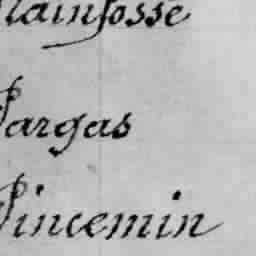 lainfosse
Vargas
Vincemin